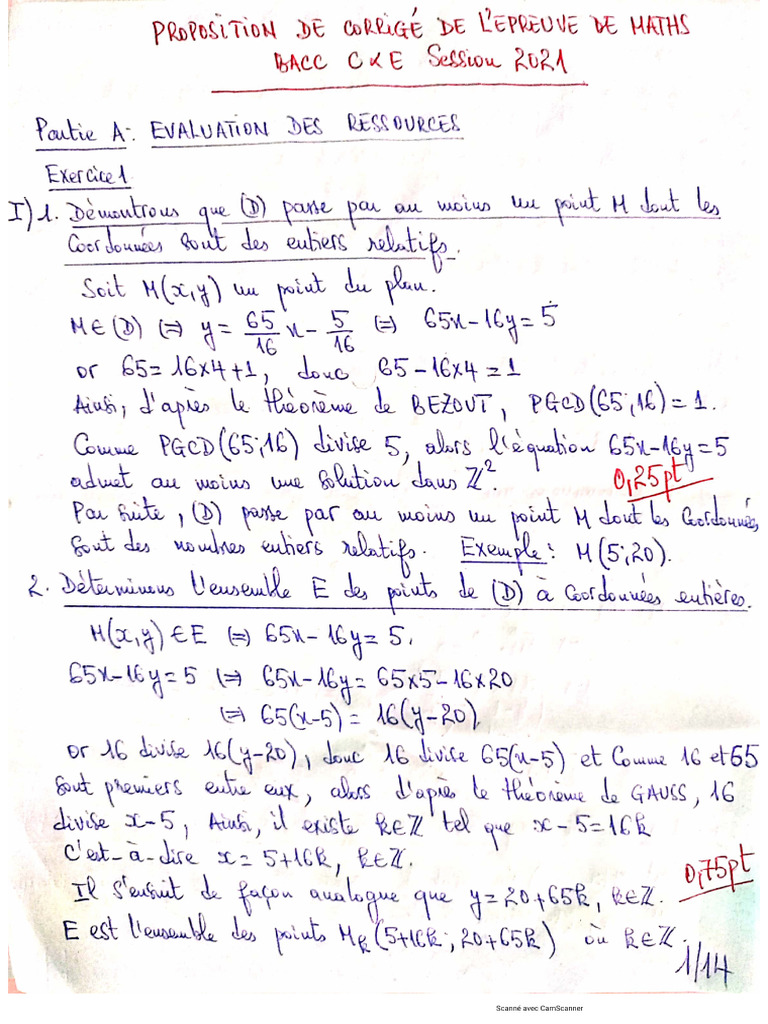 PROPOSITION DE CORRIGÉ DE L'EPREUVE DE MATHS
BACC C & E Session 2021
Partie A: EVALUATION DES RESSOURCES
Exercice 1
I) 1. Démontrons que (D) passe par au moins un point M dont les
Coordonnées sont des entiers relatifs.
Soit M(x,y) un point du plan.
M∈(D) ⟺ y = 65/16 x - 5/16 ⟺ 65x-16y = 5
or 65 = 16×4+1, donc 65-16×4 = 1
Ainsi, d'après le théorème de BEZOUT, PGCD(65;16) = 1.
Comme PGCD(65;16) divise 5, alors l'équation 65x-16y=5
admet au moins une solution dans ℤ². 0,25pt
Par suite, (D) passe par au moins un point M dont les Coordonnées
sont des nombres entiers relatifs. Exemple: M(5;20).
2. Déterminons l'ensemble E des points de (D) à coordonnées entières.
M(x,y) ∈ E ⟺ 65x-16y = 5.
65x-16y = 5 ⟺ 65x-16y = 65×5-16×20
⟺ 65(x-5) = 16(y-20)
or 16 divise 16(y-20), donc 16 divise 65(x-5) et comme 16 et 65
sont premiers entre eux, alors d'après le théorème de GAUSS, 16
divise x-5, Ainsi, il existe k∈ℤ tel que x-5=16k
C'est-à-dire x = 5+16k, k∈ℤ.
Il s'ensuit de façon analogue que y = 20+65k, k∈ℤ. 0,75pt
E est l'ensemble des points Mk(5+16k; 20+65k) où k∈ℤ.
1/14
Scanné avec CamScanner